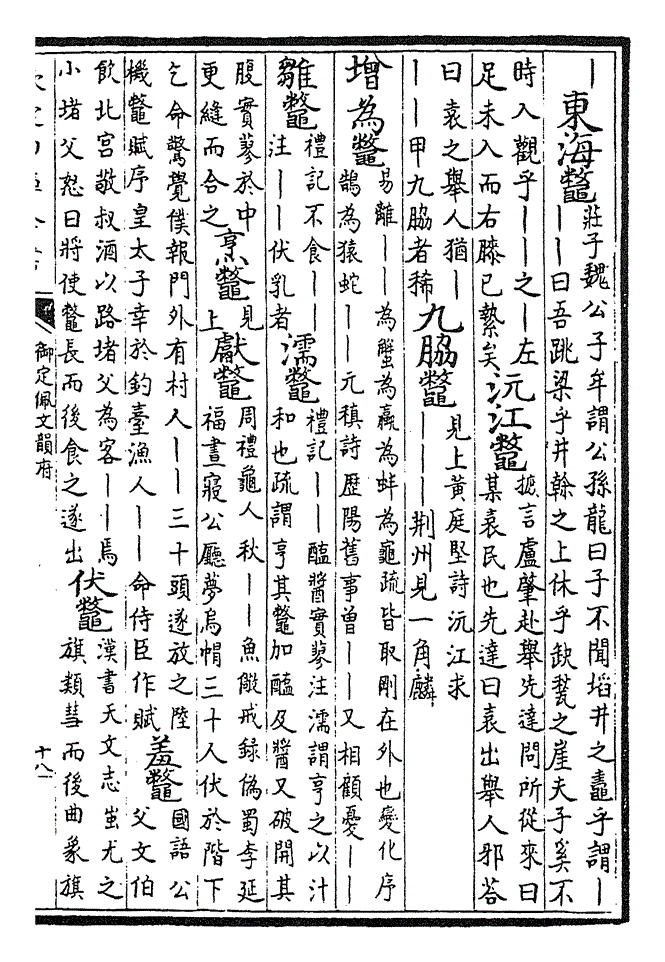 ｜東海鼈莊子魏公子牟謂公孫龍曰子不聞埳井之鼃乎謂｜
｜｜曰吾跳梁乎井榦之上休乎缺甃之崖夫子奚不
時入觀乎｜｜之｜左
足未入而右膝已縶矣
沅江鼈摭言盧肇赴舉先達問所從來曰
某袁民也先達曰袁出舉人邪答
曰袁之舉人猶｜
｜｜甲九脇者稀
九脇鼈見上黃庭堅詩沅江求
｜｜｜荆州見一角麟
增為鼈易離｜｜｜為蟹為蠃為蚌為龜疏皆取剛在外也變化序
鵠為猿蛇｜｜元稹詩歷陽舊事曽｜｜又相顧憂｜｜
雛鼈禮記不食｜｜
注｜｜伏乳者
濡鼈禮記｜｜醢醬實蓼注濡謂亨之以汁
和也疏謂亨其鼈加醢及醬又破開其
腹實蓼於中
更縫而合之
烹鼈見
上
獻鼈周禮龜人秋｜｜魚儆戒錄偽蜀李延
福晝寢公廳夢烏帽三十人伏於階下
乞命驚覺僕報門外有村人｜｜三十頭遂放之陸
機鼈賦序皇太子幸於釣臺漁人｜｜命侍臣作賦
羞鼈國語公
父文伯
飲北宮敬叔酒以路堵父為客｜｜焉
小堵父怒曰將使鼈長而後食之遂出
伏鼈漢書天文志蚩尤之
旗類彗而後曲象旗
御定佩文韻府
十八